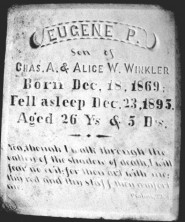 EUGENE P.
Son of
CHAS. A. & ALICE W. WINKLER
Born Dec. 18, 1869;
Fell asleep Dec. 23, 1895,
Aged 26 Ys & 5 D's.
Yea, though I walk through the
valley of the shadow of death, I will
fear no evil for thou art with me;
thy rod and thy staff they comfort